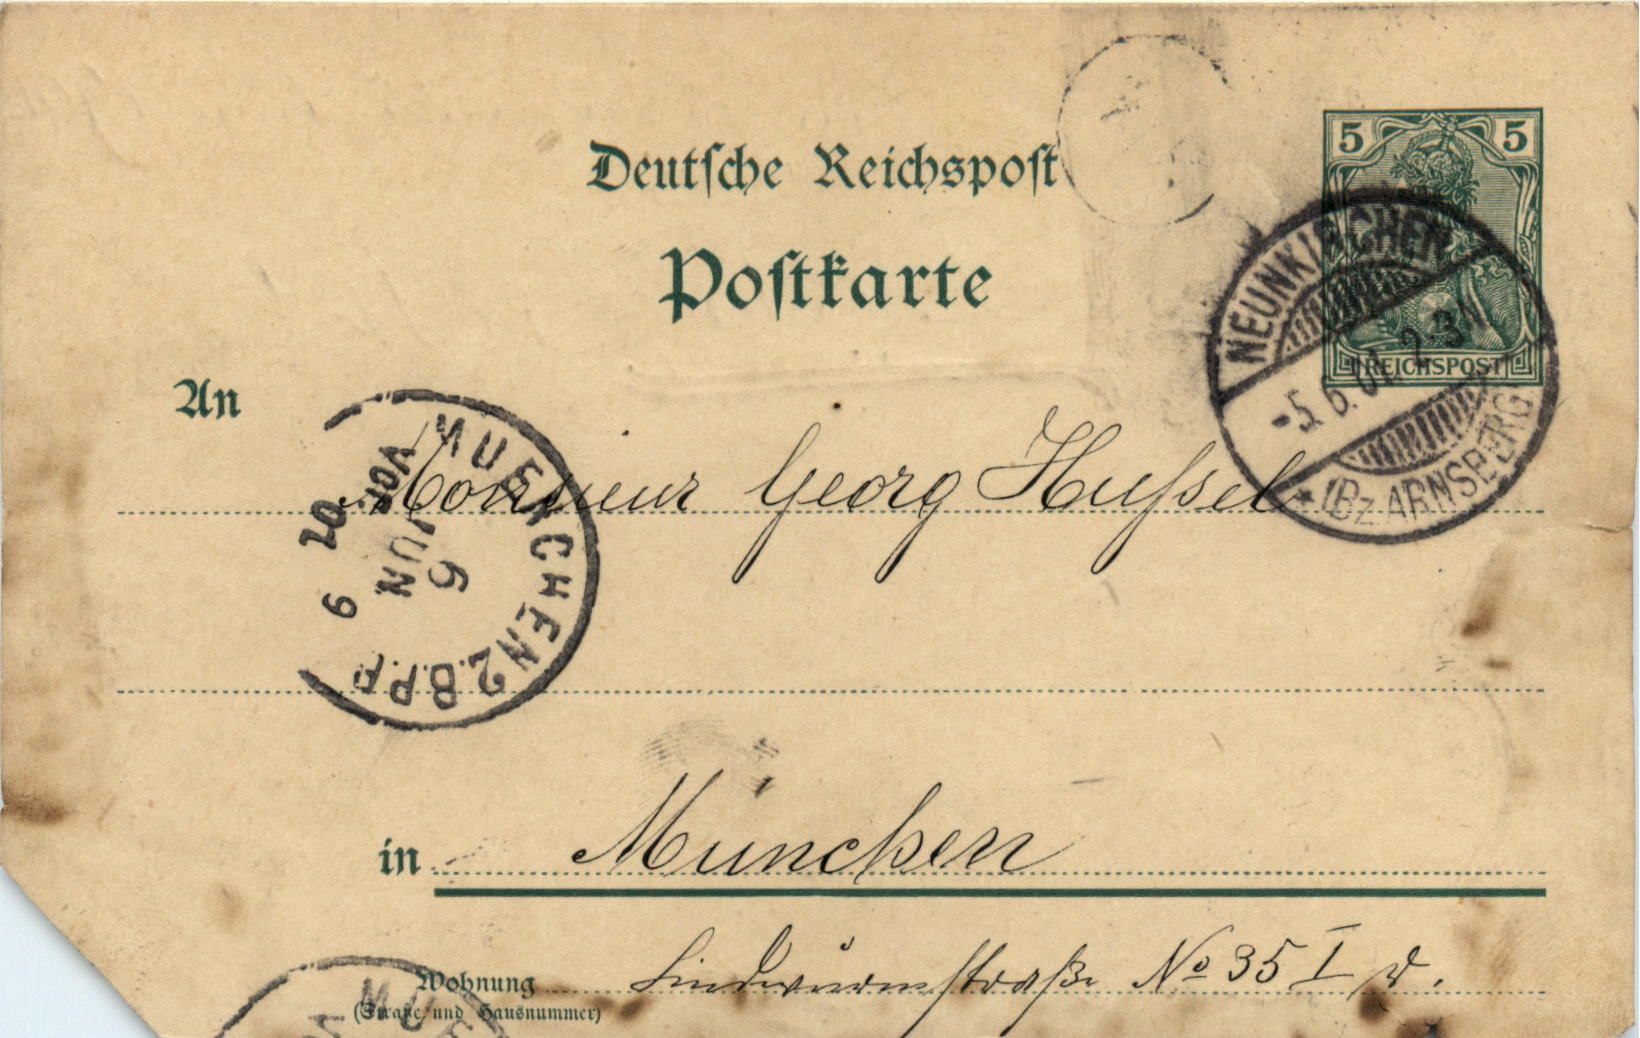 Deutsche Reichspost
Postkarte
5 5
REICHSPOST
NEUNKIRCHEN
-5.6.01. 2-3N
* (BZ. ARNSBERG
An
Monsieur Georg Hußel
MUENCHEN 2.B.P.F
VOR
6
JUN.
10
9
in München
Wohnung Lindwurmstraße No 35 I r.
(Straße und Hausnummer)
MUE